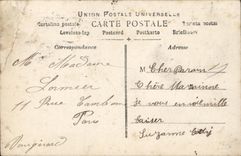 UNION POSTALE UNIVERSELLE
CARTE POSTALE
Cartolina postale
Levelezo-lap
Postcard
Postkarte
Briefkaart
Correspondance
Adresse
M Madame
Lormier
11 Rue
Paris
Vaugirard
M. Cher Parrain
Chère Marainne
je vous envoi mille
baiser
Suzanne